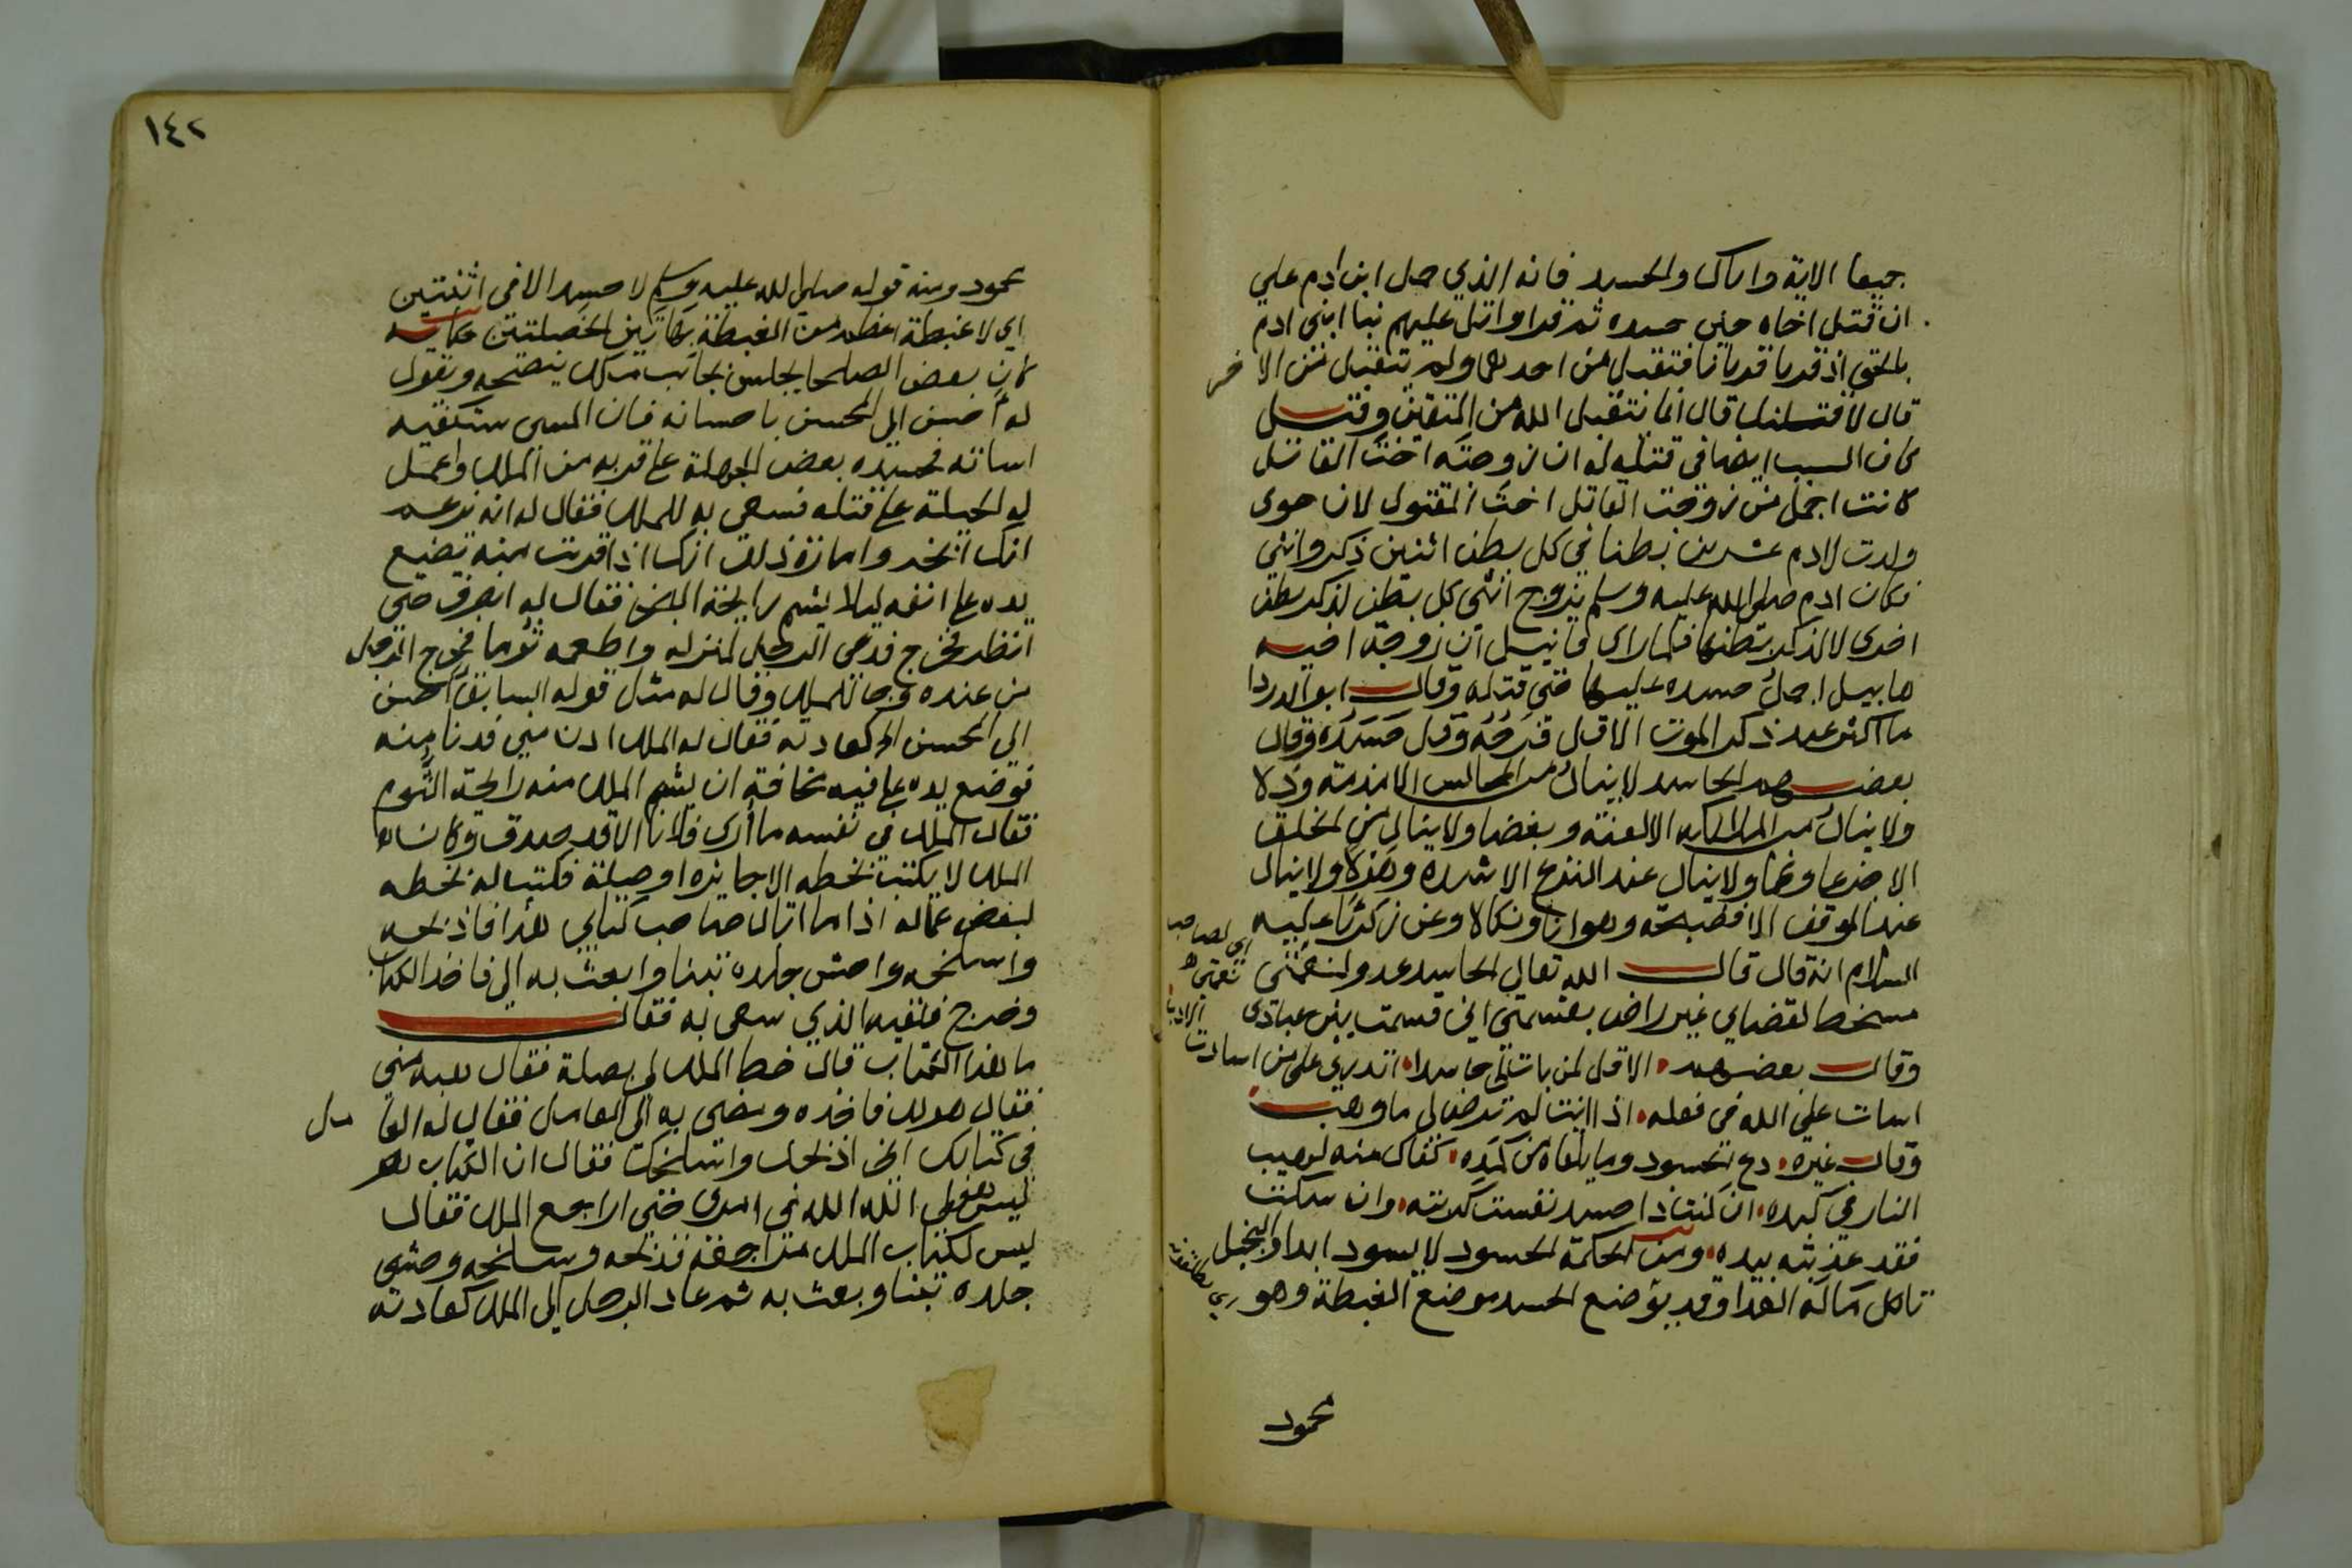 جميعا الاية واياك والحسد فانه الذي حمل ابن ادم علي
ان قتل اخاه حين حسده ثم قرا واتل عليهم نبا ابني ادم
بالحق اذ قربا قربانا فتقبل من احدهما ولم يتقبل من الاخر
قال لاقتلنك قال انما يتقبل الله من المتقين وقيل
كان السبب ايضا في قتله له ان زوجته اخت القاتل
كانت اجمل من زوجت القاتل اخت المقتول لان حوى
ولدت لادم عشرين بطنا في كل بطن اثنين ذكر وانثي
فكان ادم صلى الله عليه وسلم يزوج انثى كل بطن لذكر بطن
اخرى لا لذكر بطنها فلما راى قابيل ان زوجة اخيه
هابيل اجمل حسده عليها حتى قتله وقال ابو الدردا
ما اكثر عبد ذكر الموت الا قل فرحه وقل حسده وقال
بعضهم الحاسد لا ينال من المجالس الا مذمة وذلا
ولا ينال من الملايكه الا لعنة وبغضا ولا ينال من الخلق
الا جزعا وغما ولا ينال عند النزع الا شدة وهولا ولا ينال
عند الموقف الا فضيحة وهوانا ونكالا وعن زكريا عليه
السلام انه قال قال الله تعالي الحاسد عدو لنعمتي
اي لصاحب
نعمتي
متسخط لقضاي غير راض بقسمتي التي قسمت بين عبادي
وقال بعضهم الا قل لمن بات لي حاسدا اتدري على من اسات الادب
اسات علي الله في فعله اذا انت لم ترض لي ما وهب
وقال غيره دع الحسود وما يلقاه من كمده كفاك منه لهيب
النار في كبده ان كنت ذا حسد نفست كربته وان سكت
فقد عذبته بيده ومن الحكمة الحسود لا يسود ابدا والبخيل
تاكل ماله العدا وقد يوضع الحسد موضع الغبطة وهو
محمود
١٤٢
محمود ومنه قوله صلى الله عليه وسلم لا حسد الا في اثنتين
اي لا غبطة اعظم من الغبطة بهاتين الخصلتين حكاية
كان بعض الصلحا يجلس بجانب ملك ينصحه ويقول
له احسن الى المحسن باحسانه فان المسى ستكفيه
اساته فحسده بعض الجهلة على قربه من الملك واعمل
له الحيلة على قتله فسعى به للملك فقال له انه يزعم
انك ابخر وامارة ذلك انك اذا قربت منه يضع
يده على انفه ليلا يشم رايحة البخر فقال له انصرف حتى
انظر فخرج فدعى الرجل لمنزله واطعمه ثوما فخرج الرجل
من عنده وجا للملك وقال له مثل قوله السابق احسن
الى المحسن الخ كعادته فقال له الملك ادن مني فدنا منه
فوضع يده على فيه مخافة ان يشم الملك منه رايحة الثوم
فقال الملك في نفسه ما ارى فلانا الا قد صدق وكان
الملك لا يكتب بخطه الا جايزة او صلة فكتب له بخطه
لبعض عماله اذا ما اتاك صاحب كتابي هذا فاذبحه
واسلخه واحش جلده تبنا وابعث به الي فاخذ الكتاب
وخرج فلقيه الذي سعى به فقال
ما هذا الكتاب قال خط الملك لي بصلة فقال هبه مني
فقال هو لك فاخذه ومضى به الى العامل فقال له العامل
في كتابك اني اذبحك واسلخك فقال ان الكتاب
ليس هو لي الله الله في امري حتى اراجع الملك فقال
ليس لكتاب الملك مراجعة فذبحه وسلخه وحشى
جلده تبنا وبعث به ثم عاد الرجل الى الملك كعادته